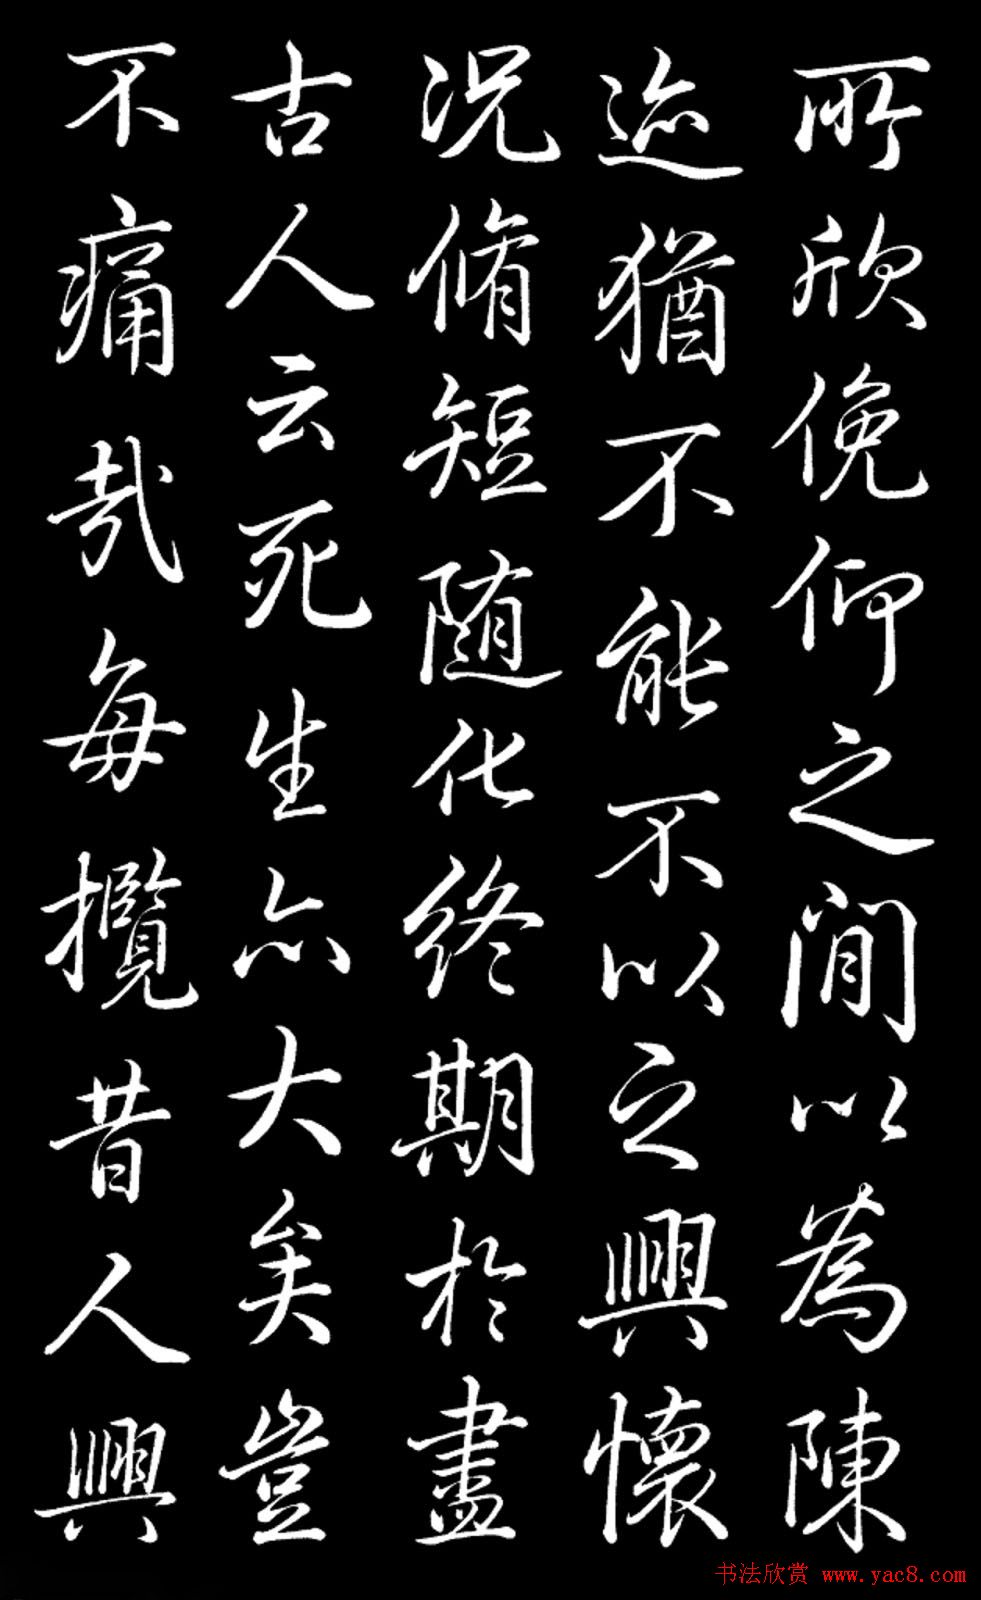 所欣俛仰之間以為陳
迹猶不能不以之興懷
況脩短随化終期於盡
古人云死生亦大矣豈
不痛哉每攬昔人興
书法欣赏 www.yac8.com